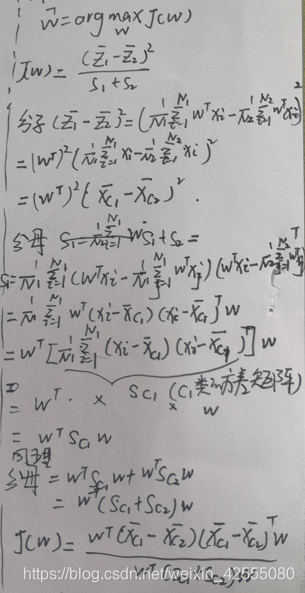 ŵ = argmax_w J(w)
J(w) = (z̄₁ - z̄₂)² / (S₁ + S₂)
分子 (z̄₁ - z̄₂)² = (1/N₁ Σ_{i=1}^{N₁} wᵀxᵢ - 1/N₂ Σ_{i=1}^{N₂} wᵀxᵢ)²
= (wᵀ)² (1/N₁ Σ_{i=1}^{N₁} xᵢ - 1/N₂ Σ_{i=1}^{N₂} xᵢ)²
= (wᵀ)² (x̄_{C1} - x̄_{C2})².
分母 S₁ + S₂ =
S₁ = 1/N₁ Σ_{i=1}^{N₁} (wᵀxᵢ - 1/N₁ Σ_{j=1}^{N₁} wᵀxⱼ)(wᵀxᵢ - 1/N₁ Σ_{j=1}^{N₁} wᵀxⱼ)ᵀ
= 1/N₁ Σ_{i=1}^{N₁} wᵀ(xᵢ - x̄_{C1})(xᵢ - x̄_{C1})ᵀw
= wᵀ[1/N₁ Σ_{i=1}^{N₁} (xᵢ - x̄_{C1})(xᵢ - x̄_{C1})ᵀ]w
S_{C1} (C₁类的方差矩阵)
= wᵀ · × × w
= wᵀS_{C1}w
同理
分母 = wᵀS_{C1}w + wᵀS_{C2}w
= wᵀ(S_{C1} + S_{C2})w
J(w) = wᵀ(x̄_{C1} - x̄_{C2})(x̄_{C1} - x̄_{C2})ᵀw / wᵀ(S_{C1} + S_{C2})w
https://blog.csdn.net/weixin_42555080